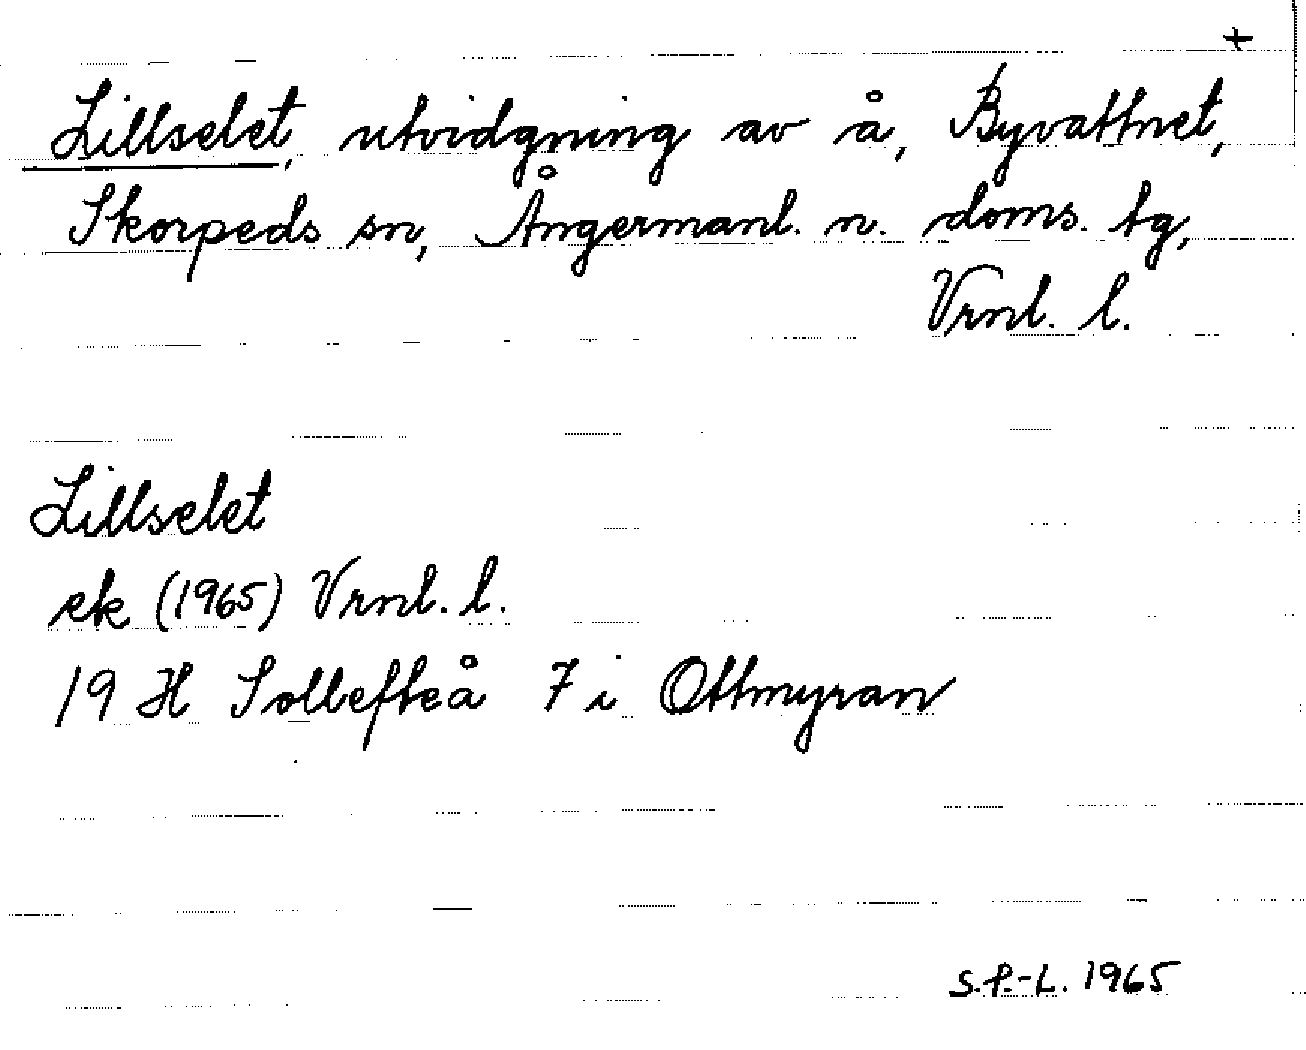 +
Lillselet, utvidgning av å, Byvattnet,
Skorpeds sn, Ångermanl. n. doms. tg,
Vrnl. l.
Lillselet
ek (1965) Vrnl. l.
19 H Sollefteå 7 i Ottmyran
S.P.-L. 1965